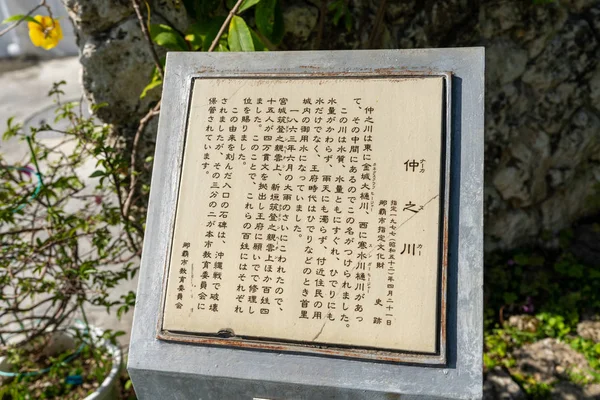 仲之川
ナーカ ヌ カー
指定一九七七(昭和五十二)年四月二十一日
那覇市指定文化財 史跡
仲之川は東に金城大樋川、西に寒水川樋川があっ
て、その中間にあるのでこの名がつけられました。
この川は水質、水量ともにすぐれ、ひでりにも
水量がかわらず、雨天にも濁らず、付近住民の用
水だけでなく、王府時代はひでりなどのとき首里
城内の御用水になっていました。
一八六三年六月の大雨のさいにこわれたので、
宮城筑登之親雲上、新垣筑登之親雲上ほか百姓四
十五人が四万貫文を拠出し王府に願いでて修理し
ました。このことで、これらの百姓にはそれぞれ
位を賜りました。
この由来を刻んだ入口の石碑は、沖縄戦で破壊
されましたが、その三分の二が本市教育委員会に
保管されています。
那覇市教育委員会